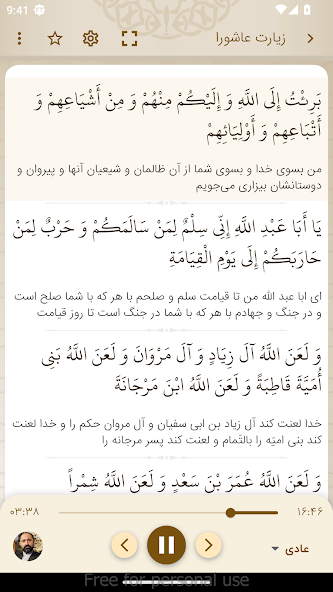 9:41
زیارت عاشورا
بَرِئْتُ إِلَی اللَّهِ وَ إِلَیْکُمْ مِنْهُمْ وَ مِنْ أَشْیَاعِهِمْ وَ
أَتْبَاعِهِمْ وَ أَوْلِیَائِهِمْ
من بسوی خدا و بسوی شما از آن ظالمان و شیعیان آنها و پیروان و
دوستانشان بیزاری می‌جویم
یَا أَبَا عَبْدِ اللَّهِ إِنِّی سِلْمٌ لِمَنْ سَالَمَکُمْ وَ حَرْبٌ لِمَنْ
حَارَبَکُمْ إِلَی یَوْمِ الْقِیَامَةِ
ای ابا عبد الله من تا قیامت سلم و صلحم با هر که با شما صلح است
و در جنگ و جهادم با هر که با شما در جنگ است تا روز قیامت
وَ لَعَنَ اللَّهُ آلَ زِیَادٍ وَ آلَ مَرْوَانَ وَ لَعَنَ اللَّهُ بَنِی
أُمَیَّةَ قَاطِبَةً وَ لَعَنَ اللَّهُ ابْنَ مَرْجَانَةَ
خدا لعنت کند آل زیاد بن ابی سفیان و آل مروان حکم را و خدا لعنت
کند بنی امیّه را بالتّمام و لعنت کند پسر مرجانه را
وَ لَعَنَ اللَّهُ عُمَرَ بْنَ سَعْدٍ وَ لَعَنَ اللَّهُ شِمْراً
۰۳:۳۸
۱۶:۴۶
عادی
Free for personal use